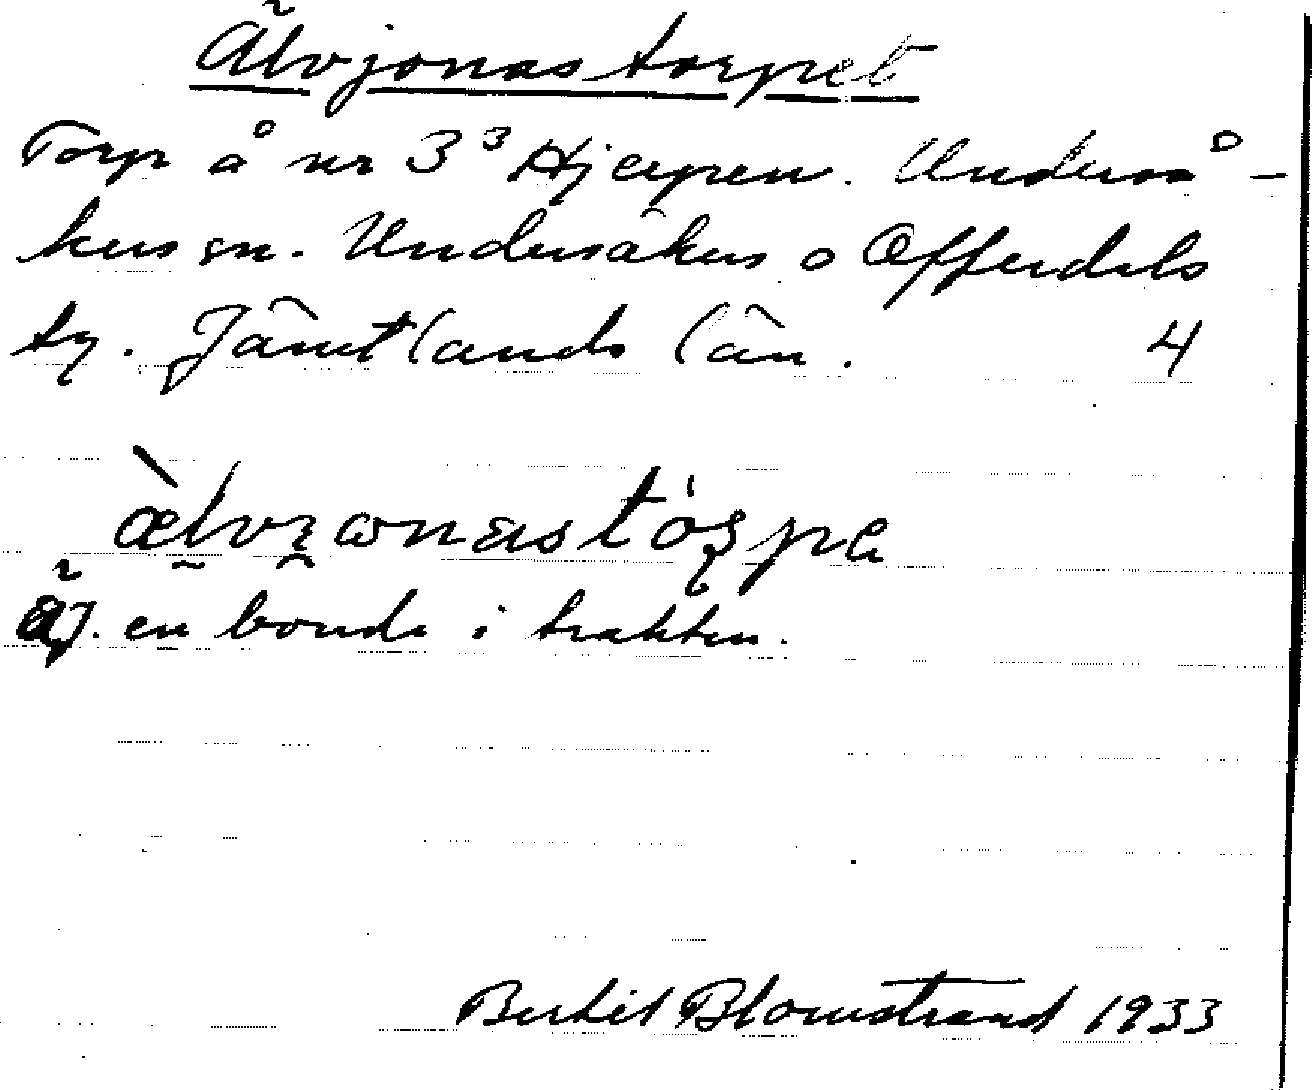 Älvjonastorpet
Torp å nr 3³ Hjerpen. Underså-
kers sn. Undersåkers o Offerdals
tg. Jämtlands län. 4
Äj. en bonde i trakten.
Bertil Blomstrand 1933